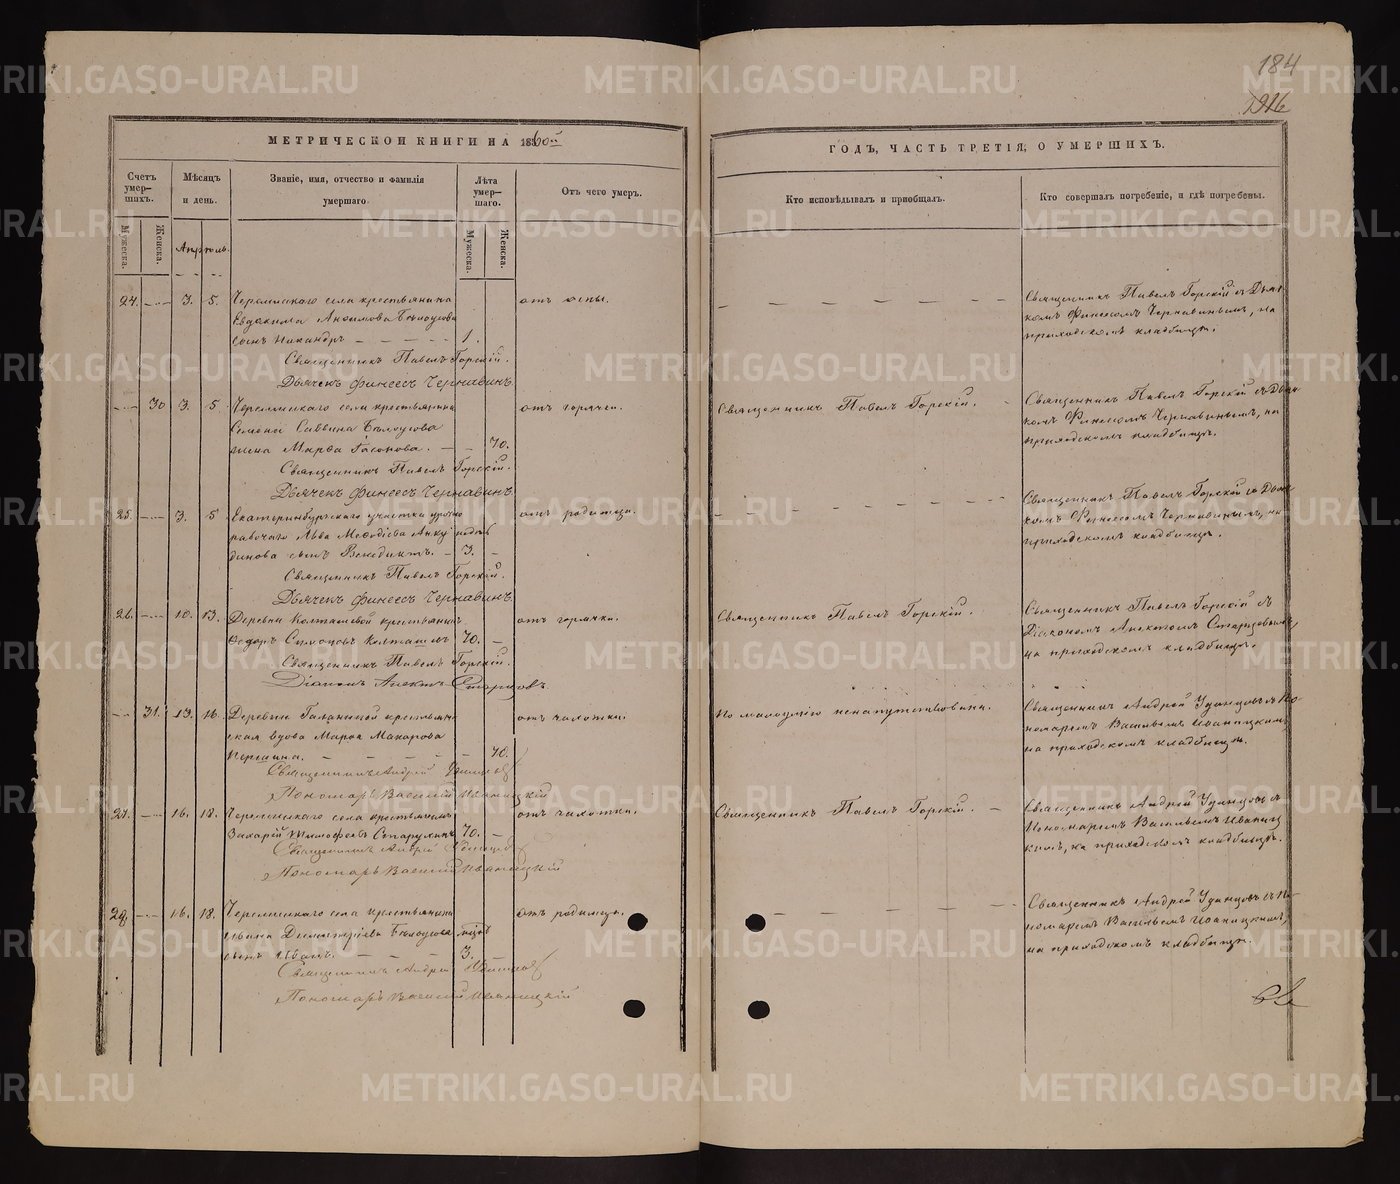 184
МЕТРИЧЕСКОЙ КНИГИ НА 1860й
ГОДЪ, ЧАСТЬ ТРЕТІЯ, О УМЕРШИХЪ.
Счетъ умер-шихъ.
Мѣсяцъ и день.
Званіе, имя, отчество и фамилія умершаго.
Лѣта умер-шаго.
Отъ чего умеръ.
Кто исповѣдывалъ и пріобщалъ.
Кто совершалъ погребеніе, и гдѣ погребены.
Мужеска.
Женска.
Мужеска.
Женска.
Апрѣль.
24. 3. 5. села крестьянина отъ оспы. Священникъ Павелъ Горскій съ Дьяч-
Евдакима Анѳимова Бѣлоусова комъ Финеесомъ Чернавинымъ, на
сынъ Никандръ 1. приходскомъ кладбищѣ.
Священникъ Павелъ Горскій.
Дьячекъ Финеесъ Чернавинъ.
30 3. 5. села крестьянина отъ горячки. Священникъ Павелъ Горскій. Священникъ Павелъ Горскій съ Дьяч-
Семена Саввина Бѣлоусова комъ Финеесомъ Чернавинымъ, на
жена Марѳа 70. приходскомъ кладбищѣ.
Священникъ Павелъ Горскій.
Дьячекъ Финеесъ Чернавинъ.
25. 3. 5 Екатеринбургскаго участка урочно отъ родимца. Священникъ Павелъ Горскій съ Дьяч-
рабочаго Льва Меѳодіева недѣль комъ Финеесомъ Чернавинымъ, на
динова сынъ Венедиктъ. 3. приходскомъ кладбищѣ.
Священникъ Павелъ Горскій.
Дьячекъ Финеесъ Чернавинъ.
26. 10. 13. Деревни Колташевой крестьянинъ отъ горячки. Священникъ Павелъ Горскій. Священникъ Павелъ Горскій съ
Ѳедоръ Колташевъ 70. Діакономъ Старцовымъ,
на приходскомъ кладбищѣ.
Священникъ Павелъ Горскій.
Діаконъ Старцовъ.
31. 13. 16. Деревни крестьян- отъ чахотки. По малоумію ненапутствована. Священникъ Андрей Удинцовъ съ По-
ская вдова Марѳа Макарова номаремъ Васильемъ Иваницкимъ,
Першина. 70. на приходскомъ кладбищѣ.
Священникъ Андрей Удинцовъ
Пономарь Василій Иваницкій
27. 16. 18. села крестьянинъ отъ чахотки. Священникъ Павелъ Горскій. Священникъ Андрей Удинцовъ съ
Захарій Тимофеевъ 70. Пономаремъ Васильемъ Иваниц-
кимъ, на приходскомъ кладбищѣ.
Священникъ Андрей Удинцовъ
Пономарь Василій Иваницкій
28. 16. 18. села крестьянина отъ родимца. Священникъ Андрей Удинцовъ съ По-
Ивана Димитріева Бѣлоусова номаремъ Васильемъ Иваницкимъ,
сынъ Иванъ. 3. на приходскомъ кладбищѣ.
Священникъ Андрей Удинцовъ
Пономарь Василій Иваницкій
METRIKI.GASO-URAL.RU